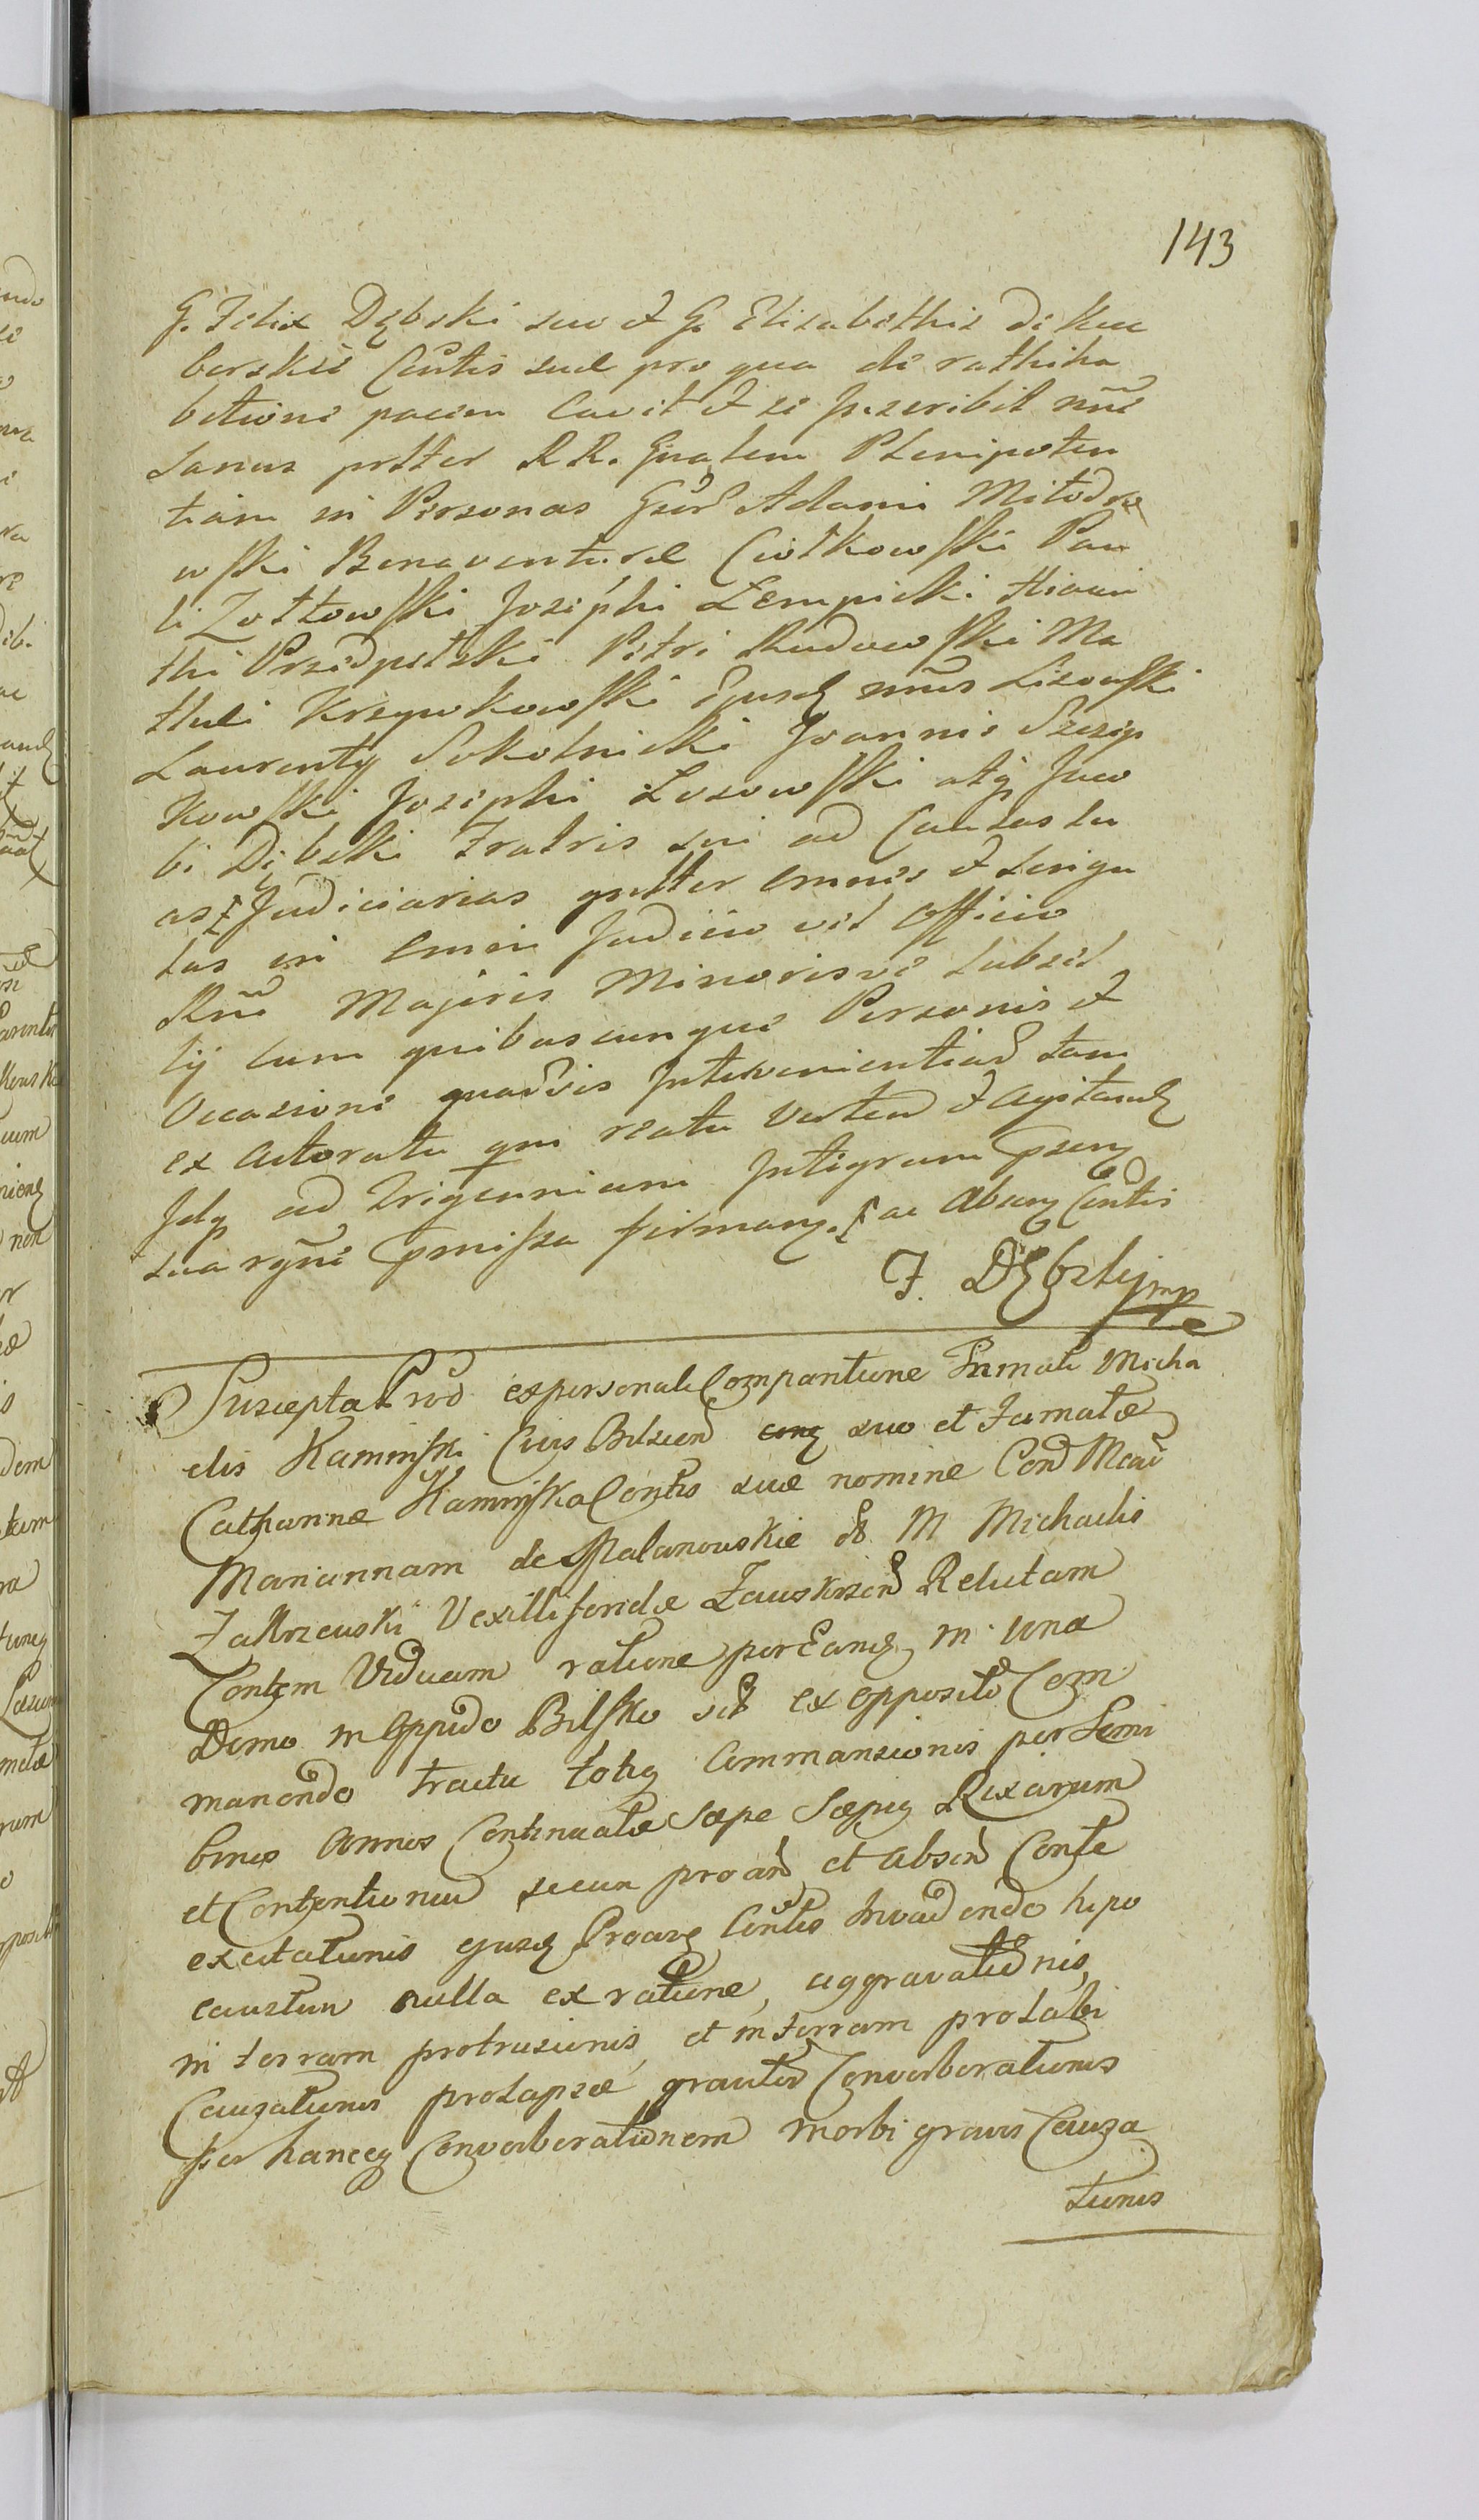 143
G. Felix Dębski suo et G. Elisabethis de Kuc
borskie Contis suae pro qua de rathiha
betione pacem cavit et se Inscribit nunc
Sanus potter R R. Gnalem Plenipoten
tiam in Personas Gsor Adami Miłodro
wski Bonaventurae Ciołkowski Pau
li Zołtowski Josephi Łempicki Hiacin
thi Przedpełski Petri Rudowski Ma
thei Krzywkowski Lisowski
Laurenty Sokolnicki Joannis Szczep
kowski Josephi Losowski atq Jaco
bi Dębski Fratris sui ad Causas su
as Judiciarias gnltter omnes et singu
las in omni Judicio vel officio
Rni Majoris Minorisve Subsel
ly cum quibuscunque Personis et
Occasione quarvis Intervenientiad tam
ex actoratu qm reatu verten et agitand
Idq ad Trigennium Integrum psens
sua rgne pmissa firmans. ac abung Contis
F. Dębski mp
Suscepta Prod ex personali Compantione Famati Micha
elis Kaminski Civis Bilscen suo et Famatae
Catharinae Kaminska Contis suae nomine Con Mcam
Mariannam de Malanowskie M Michaelis
Zakrzewski Vexilliferidae Zawskrzen Relictam
Contem Viduam ratione per Eand in una
Domo in Oppido Bilsko ex opposito Com
manendo tractu totius Commansionis per Semi
binos annos Continuatae Saepe Saepius Rixarum
et Contentionu secum proan et absen Conte
excitationis ejusd Proans Contis Invadendo hipo
caustum nulla ex ratione, aggravationis,
in terram protrusionis, et in terram prolabi
Causationis prolapsae graviter Converberationis
per hancce Converberationem morbi gravis Causa
tionis